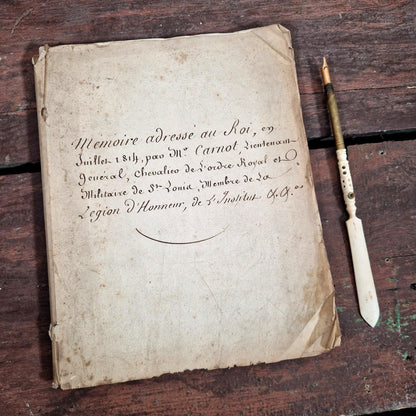 Memoire adressé au Roi, en
Juillet 1814, par Mr. Carnot, Lieutenant
général, chevalier de L'ordre Royal et
Militaire de St. Louis, Membre de La
Légion d'Honneur, de l'Institut &.&.ca